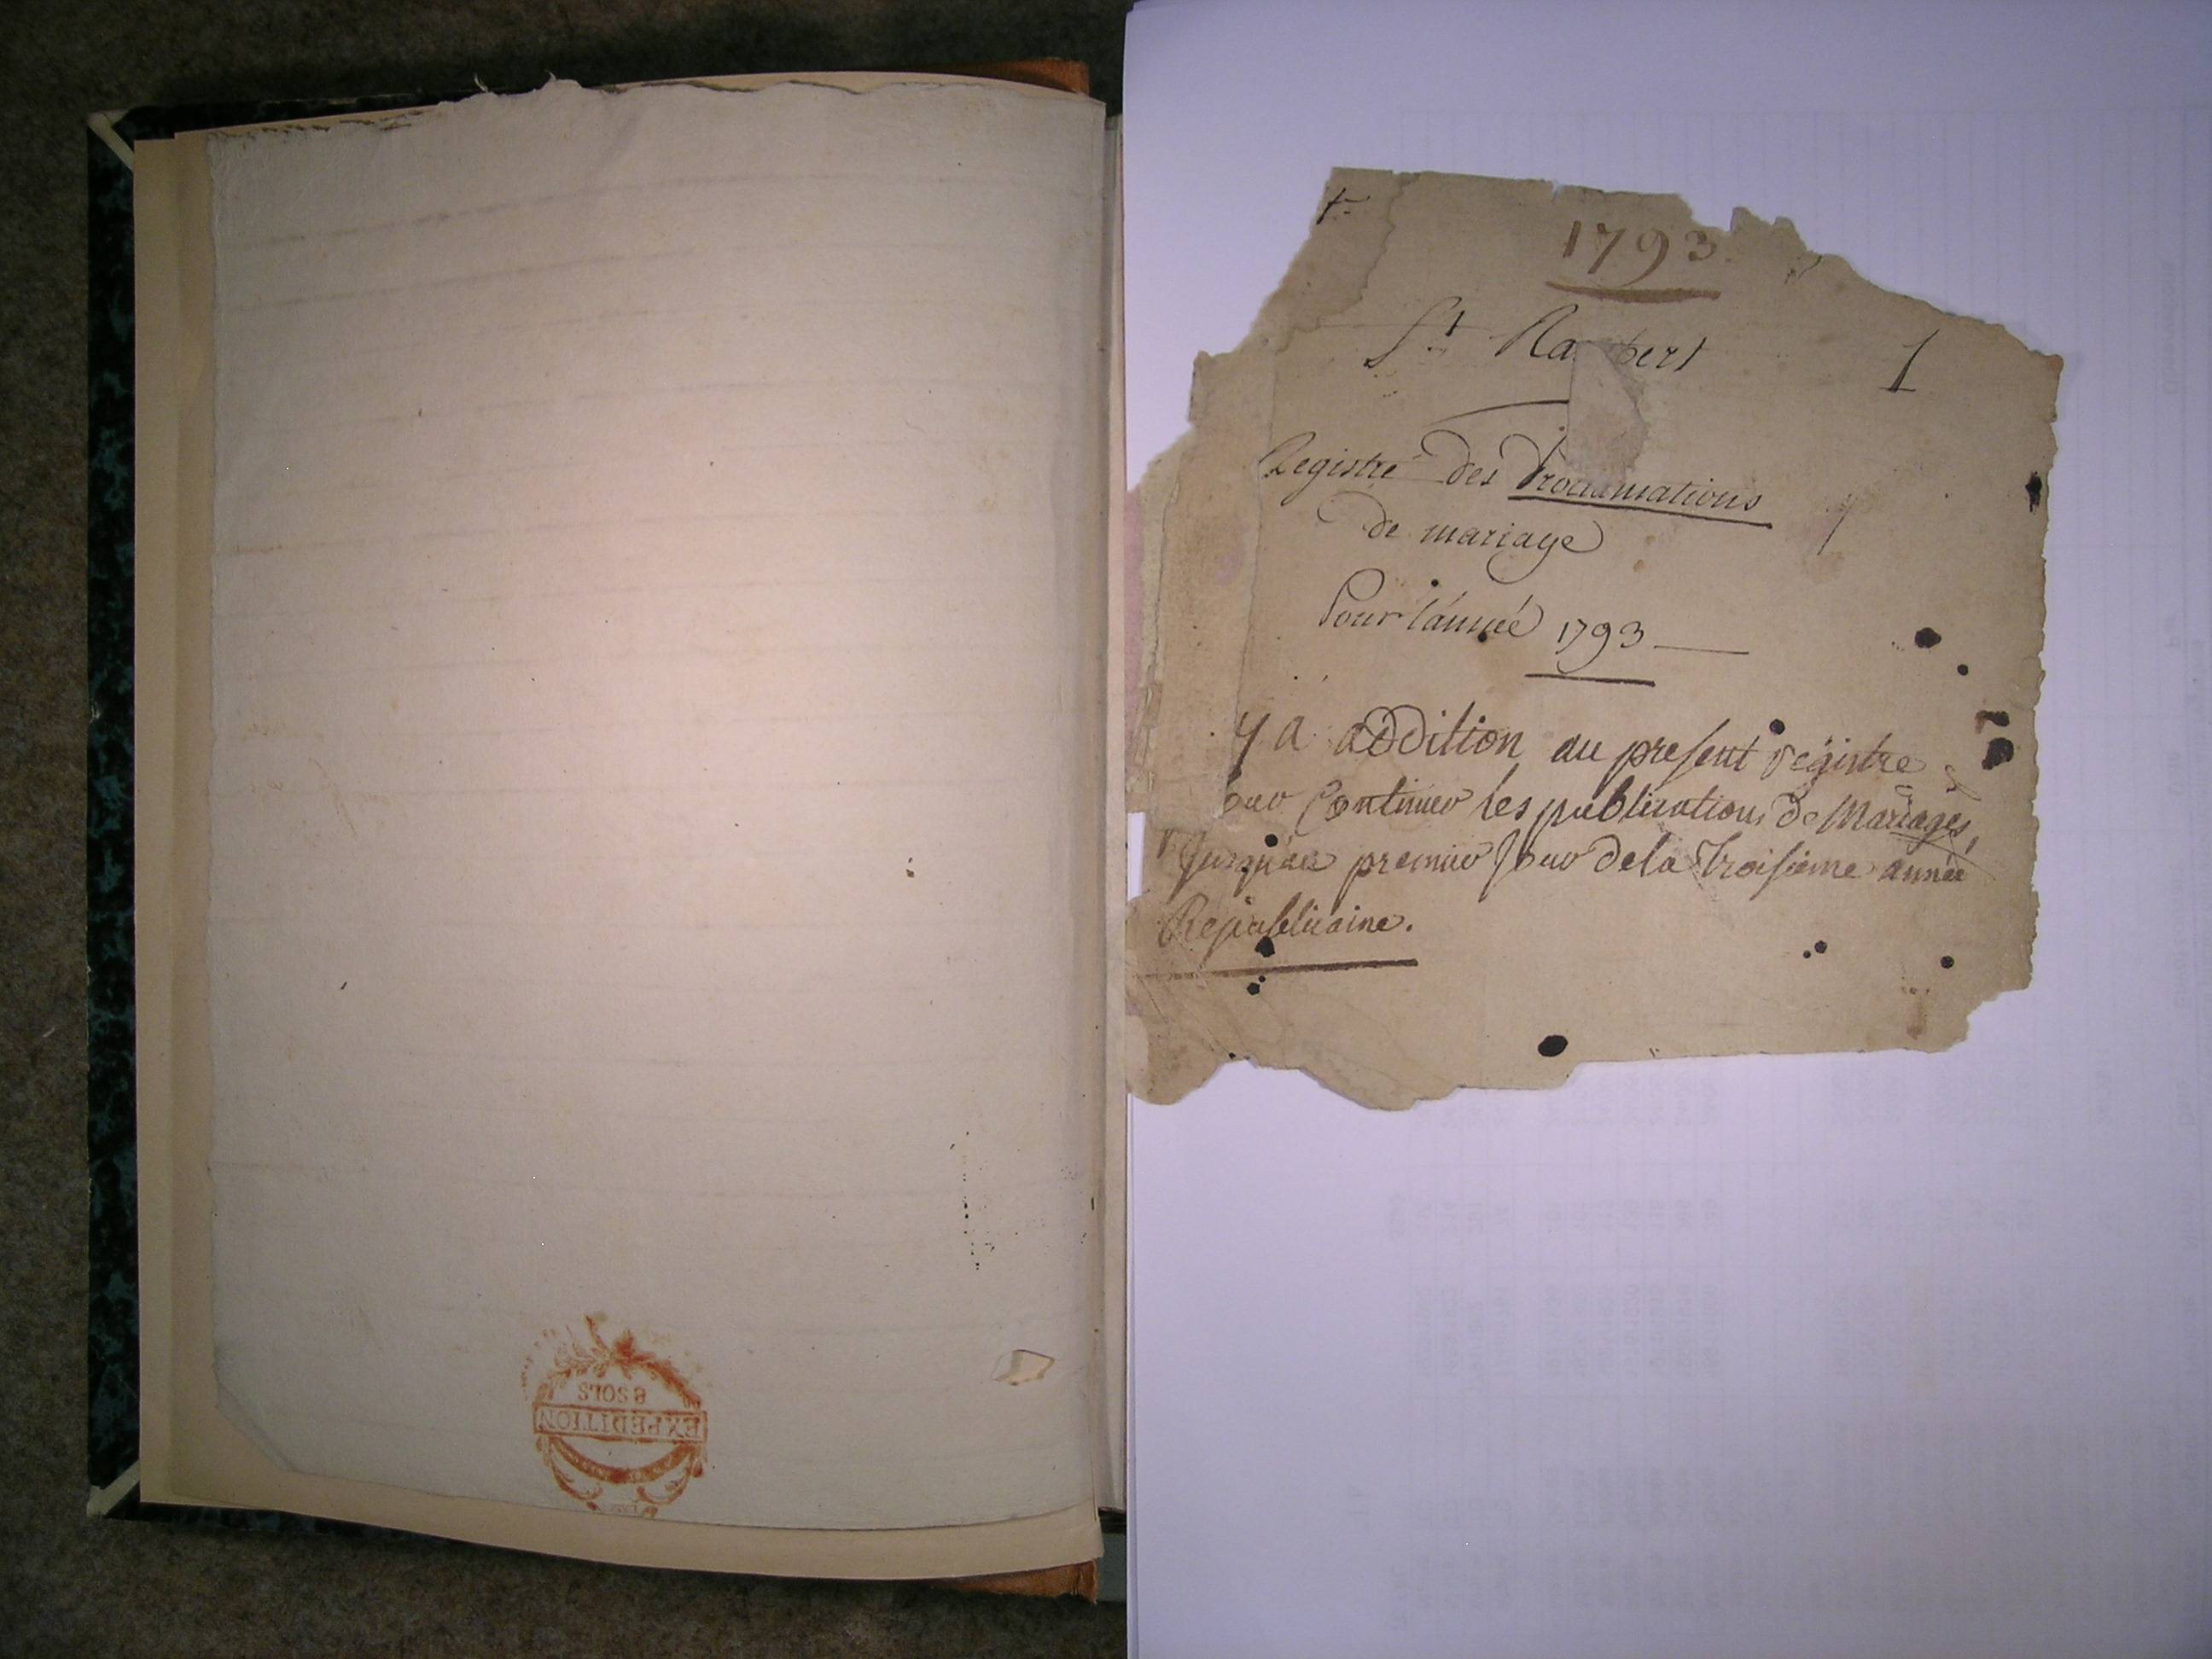 8 SOLS
EXPEDITION
1793.
St Ra bert
1
Registre des Proclamations
de mariage
Pour l'année 1793
y a addition au present régistre
pour Continuer les publications de Mariages,
Jusqu'au premier Jour de la troisième année
Republicaine.